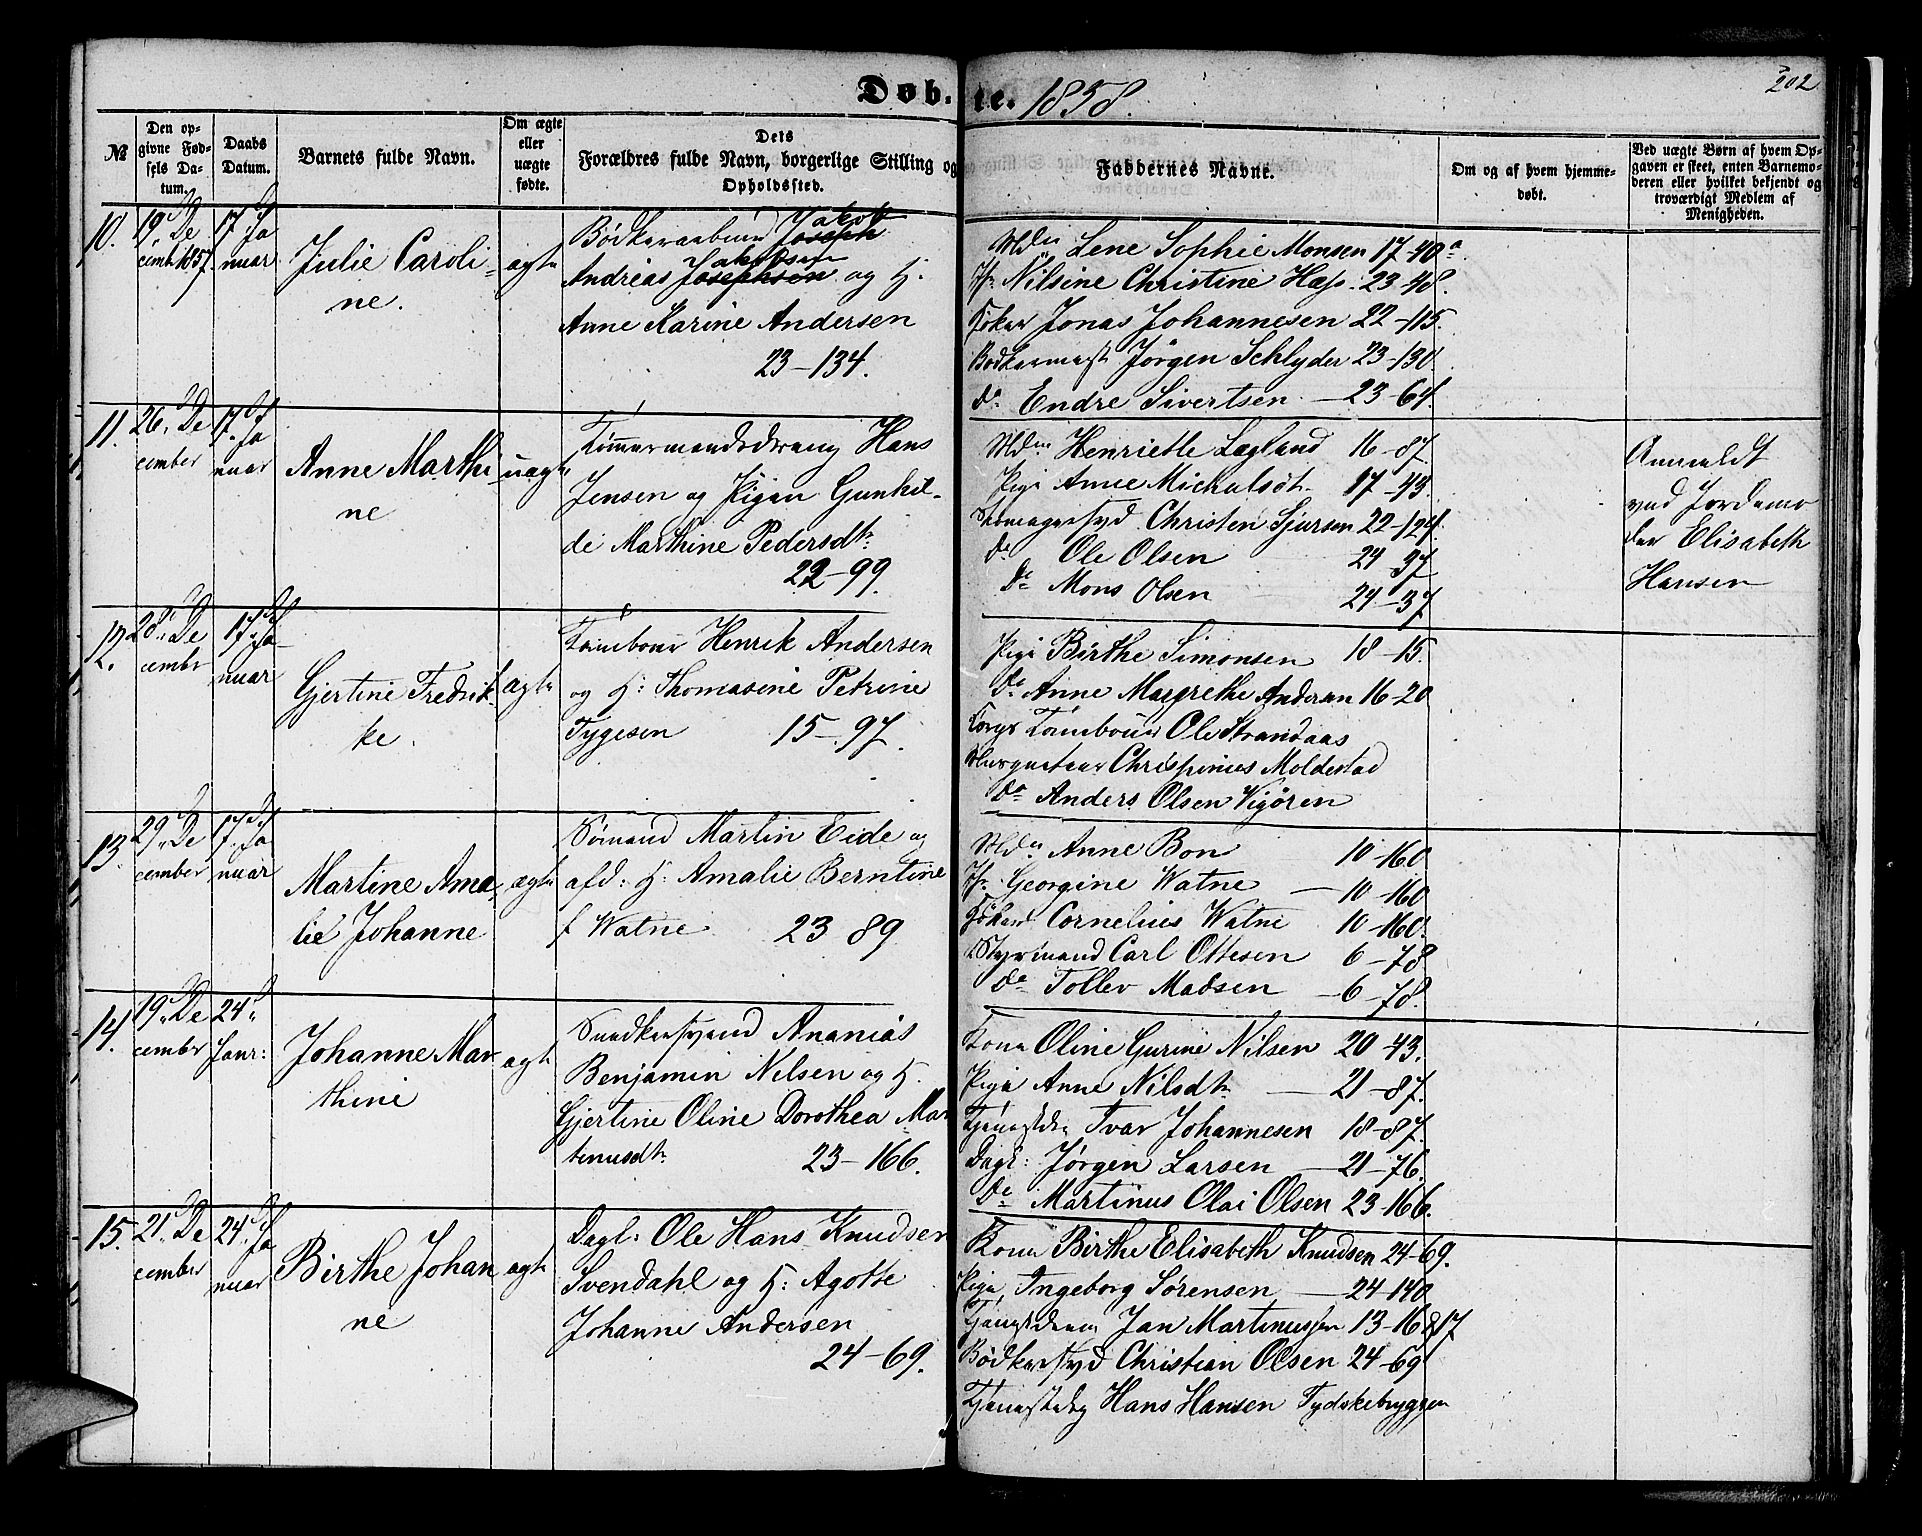 Døb-te. 1858.
202
№
Den opgivne Fødsels Datum.
Daabs Datum.
Barnets fulde Navn.
Om ægte eller uægte fødte.
Dets Forældres fulde Navn, borgerlige Stilling og Opholdssted.
Faddernes Navne.
Om og af hvem hjemmedøbt.
Ved uægte Børn af hvem Opgaven er skeet, enten Barnemoderen eller hvilket bekjendt og troværdigt Medlem af Menigheden.
10.
19. De
cemb. 1857.
17. Ja
nuar
Julie Caroli=
ne.
ægte
Jakob
Joseph
Jakobsen
Andreas Josephsen og H.
Anne Karine Andersen
23-134.
Md. Lene Sophie Monsen 17-40a
Jfr. Nilsine Christine Hass. 23-48.
Jonas Johannesen 22-115.
Bødkermest Jørgen Schlyder 23-130.
do Endre Sivertsen 23-64.
11.
26. De
cember
17. Ja
nuar
Anne Marthi
ne
uægte
Tømmermandsdreng Hans
Jensen og Pigen Gunhil-
de Marthine Pedersdtr.
22-99.
Mdm Henriette Lagland 16-87.
Pige Anne Michelsdt. 17-43
Skomagersvd. Christen Sjursen 22-124.
do Ole Olsen 24-37
do Mons Olsen 24-37
Anmeldt
ved Jordemo
der Elisabeth
Hansen
12.
28. De
cember
17. Ja
nuar
Gjertine Fredrik-
ke.
ægte
Tambour Henrik Andersen
og H: Thomasine Petrine
Tygesen 15-97.
Pige Birthe Simonsen 18-15.
do Anne Margrethe Andersen 16-20
Corps Tambour Ole Strandaas
Christinius Moldestad
do Anders Olsen Vigøren
13.
29. De
cember
17. Ja
nuar
Martine Ama
lie Johanne
ægte
Sømand Martin Eide og
afd: H: Amalie Berntine
f Watne 23 89
Mdm Anne Bon 10-160
Jfr. Georgine Watne 10-160
Cornelius Watne 10-160.
Styrmand Carl Ottesen 6-78
do Tollev Madsen 6-78.
14.
19. De
cember
24.
Janr:
Johanne Mar
thine
ægte
Snedkersvend Ananias
Benjamin Nilsen og H.
Gjertine Oline Dorothea Mar
tinusdtr. 23-166.
Kone Oline Gurine Nilsen 20-43.
Pige Anne Nilsdtr 21-87.
Ivar Johannesen 18-87.
Dagl: Jørgen Larsen 21-76.
do Martinus Olai Olsen 23-166.
15.
21. De
cember
24. Ja
nuar
Birthe Johan
ne
ægte
Dagl: Ole Hans Knudsen
Svendahl og H: Agotte
Johanne Andersen
24-69.
Kone Birthe Elisabeth Knudsen 24-69.
Pige Ingeborg Sørensen 24-140
Jan Martinussen 13-16&17
Bødkersvd Christian Olsen 24-69
Hans Hansen Tydskebryggen